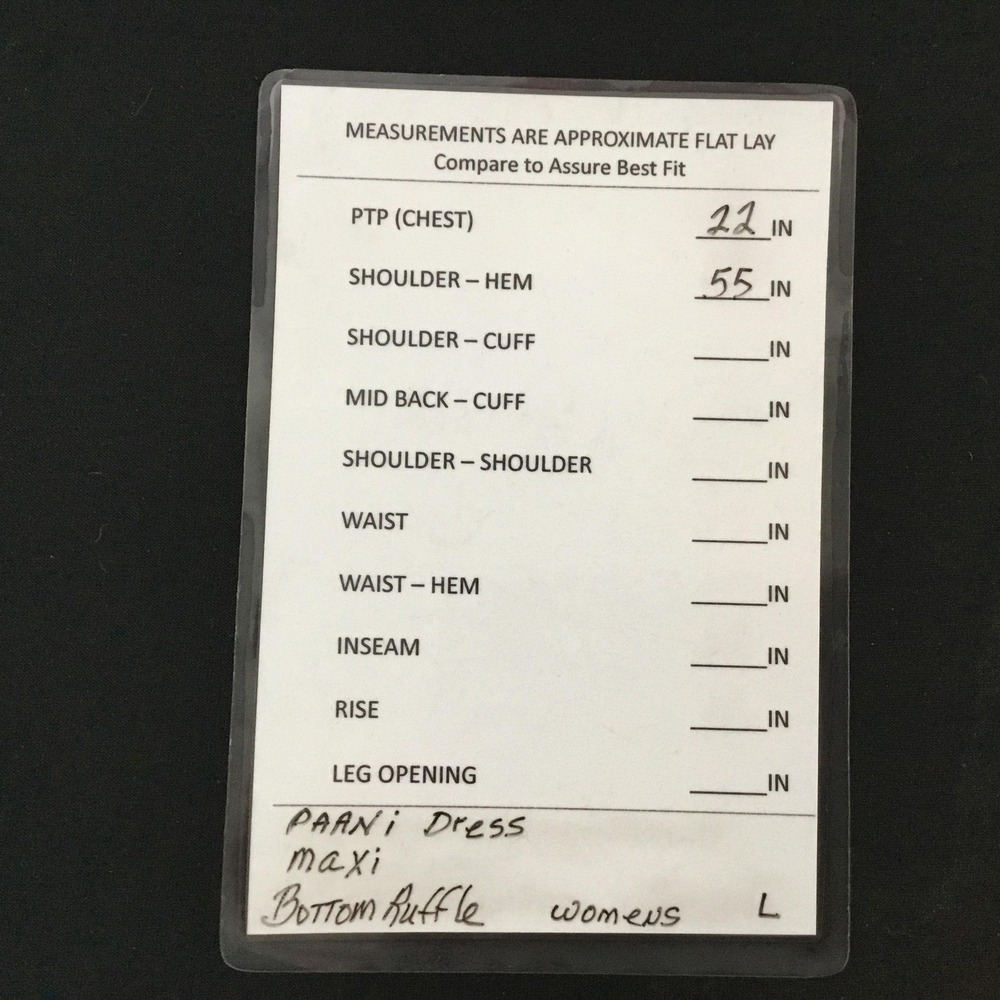 MEASUREMENTS ARE APPROXIMATE FLAT LAY
Compare to Assure Best Fit
PTP (CHEST) 22 IN
SHOULDER – HEM 55 IN
SHOULDER – CUFF ______IN
MID BACK – CUFF ______IN
SHOULDER – SHOULDER ______IN
WAIST ______IN
WAIST – HEM ______IN
INSEAM ______IN
RISE ______IN
LEG OPENING ______IN
PAANi Dress
maxi
Bottom Ruffle womens L